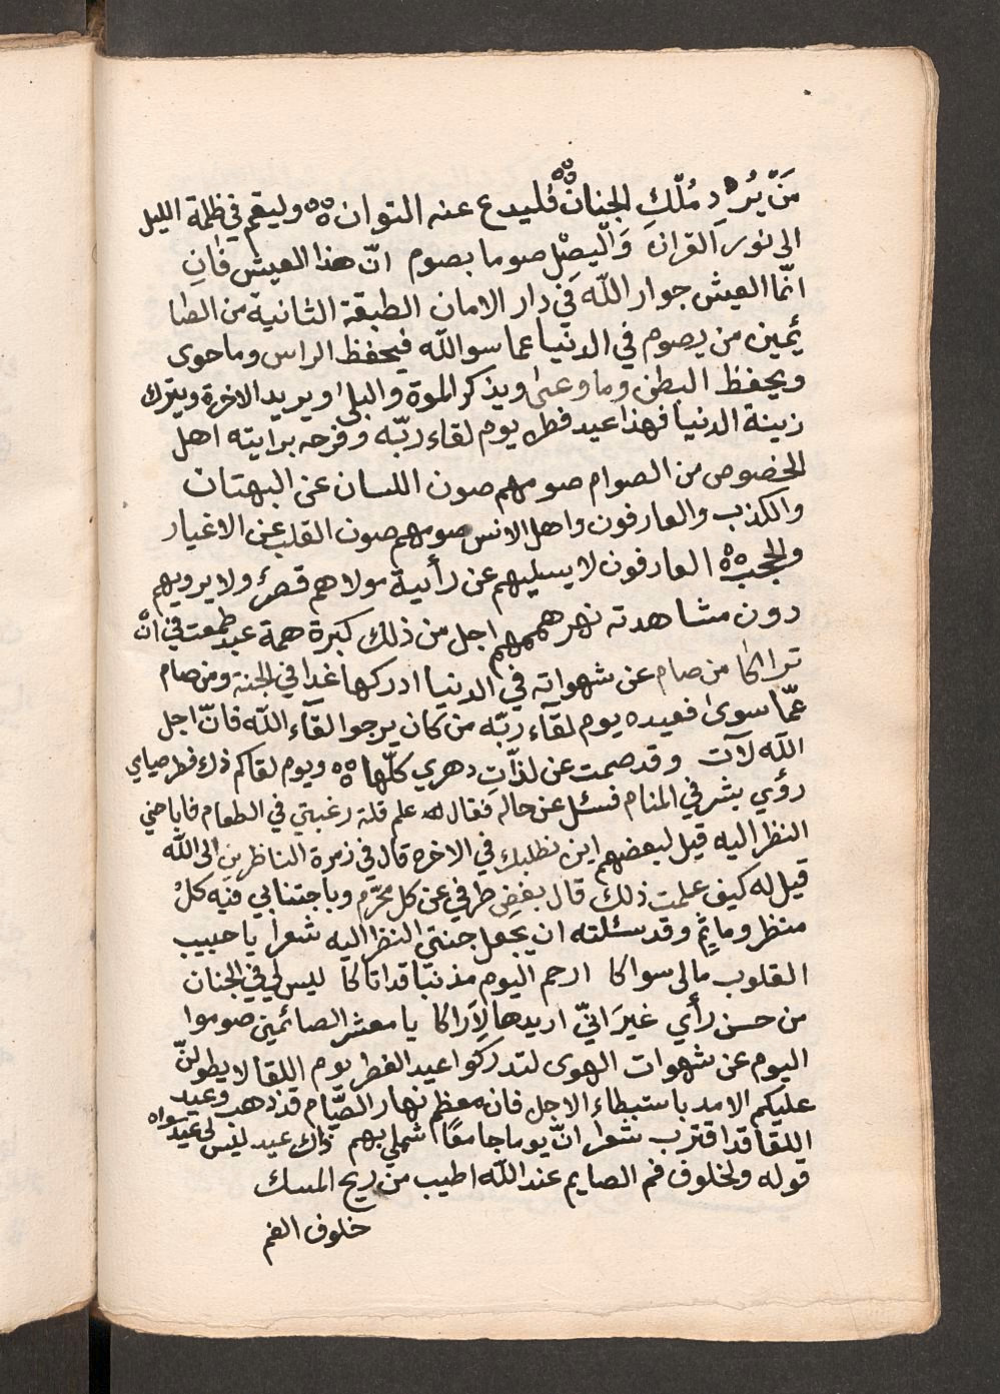 مَنْ يُرِدِ مُلْكِ الجنانْ فليدع عنه التوان ۵۵ وليقم في ظلمة الليل
الى نور القران وَالْيصِلْ صوما بصوم انّ هذا العيش فَانِ
انّما العيش جوار اللّه فَي دار الامان الطبقة الثانية من الصا
ئمين من يصوم في الدنيا عما سوالله فيحفظ الراس وما حوى
ويحفظ البطن وما وعىٰ ويذكر الموة والبلىٰ ويريد الاخرة ويترك
زينة الدنيا فهذا عيد فطره يوم لقاء ربّه وفرحه برايته اهل
الخصوص من الصوام صومهم صون اللسان عن البهتان
والكذب والعارفون واهل الانس صومهم صون القلب عن الاغيار
والحجب ۵۵ العارفون لا يسليهم عن رأيية مولاهم قصرٌ ولا يرويهم
دون مشاهدته نهر هممهم اجل من ذلك كبرة همة عبد طمعت في انْ
تراكا من صام عن شهواته في الدنيا ادركها غدا في الجنة ومن صام
عمّا سوىٰ فعيده يوم لقآء ربّه من كان يرجوا لقآء اللّه فانّ اجل
اللّه لآت وقد صمت عن لذّاتِ دهري كلّها ۵۵ ويوم لقاكم ذك فطر صيامي
رؤي بشر في المنام فسئل عن حاله فقال علم قلة رغبتي في الطعام فاباحني
النظر اليه قيل لبعضهم اين نطلبك في الاخره قال في زمرة الناظرين الى اللّه
قيل له كيف علمت ذلك قال بغضِ طرفي عن كل محرّم وباجتنابي فيَه كلُ
منظر وماثِمٍ وقد سئلته ان يجعل جنتي النظر اليه شعرا يا حبيب
القلوب مالى سواكا ارحم اليوم مذنبًا قد اتاكا ليس لي في الجنان
من حسن رأي غيرَ انّي اريدها لِاَراكا يا معشر الصائمين صوموا
اليوم عن شهوات الهوى لتدركوا عيد الفطر يوم اللقا لا يطولنّ
عليكم الامد باستبطاء الاجل فان معظم نهار الصّيام قد ذهب وعيد
اللقا قد اقترب شعرا انّ يوما جامعًا اشملي بهم ذاك عيد ليس لي عيد سواه
قوله ولخلوف فم الصايم عند اللّه اطيب من ريح المسك
خلوف الفم